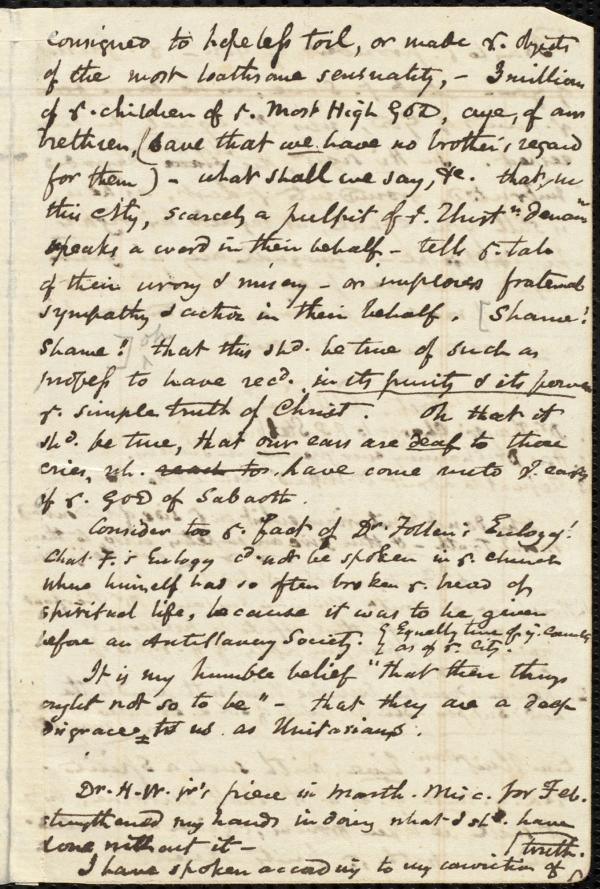 consigned to hopeless toil, or made ye. objects
of the most loathsome sensuality, - 3 million
of ye. children of ye. Most High GOD, aye, of our
brethren, (save that we have no brother's regard
for them) - what shall we say, &c. that, in
this city, scarcely a pulpit of ye. Unitn. denomn
speaks a word in their behalf - tells ye. tale
of their wrong & misery - or implores fraternal
sympathy & action in their behalf. [Shame!
Shame!] that this shd. be true of such as
profess to have recd. in its purity & its power
ye. simple truth of Christ. Oh that it
shd. be true, that our ears are deaf to those
cries, wh. reach to have come unto ye. ears
of ye. GOD of Sabaoth.
Consider too ye. fact of Dr. Follen's Eulogy!
Chas. F.'s Eulogy cd. not be spoken in ye. church
where himself had so often broken ye. bread of
spiritual life, because it was to be given
before an Antislavery Society. Equally true of ye. Country
as of ye. City.
It is my humble belief "that these things
ought not so to be" - that they are a deep
disgrace to us as Unitarians.
Dr. H. W. jr's piece in Month. Misc. for Feb.
strengthened my hands in doing what I shd. have
done without it -
I have spoken according to my conviction of
truth.